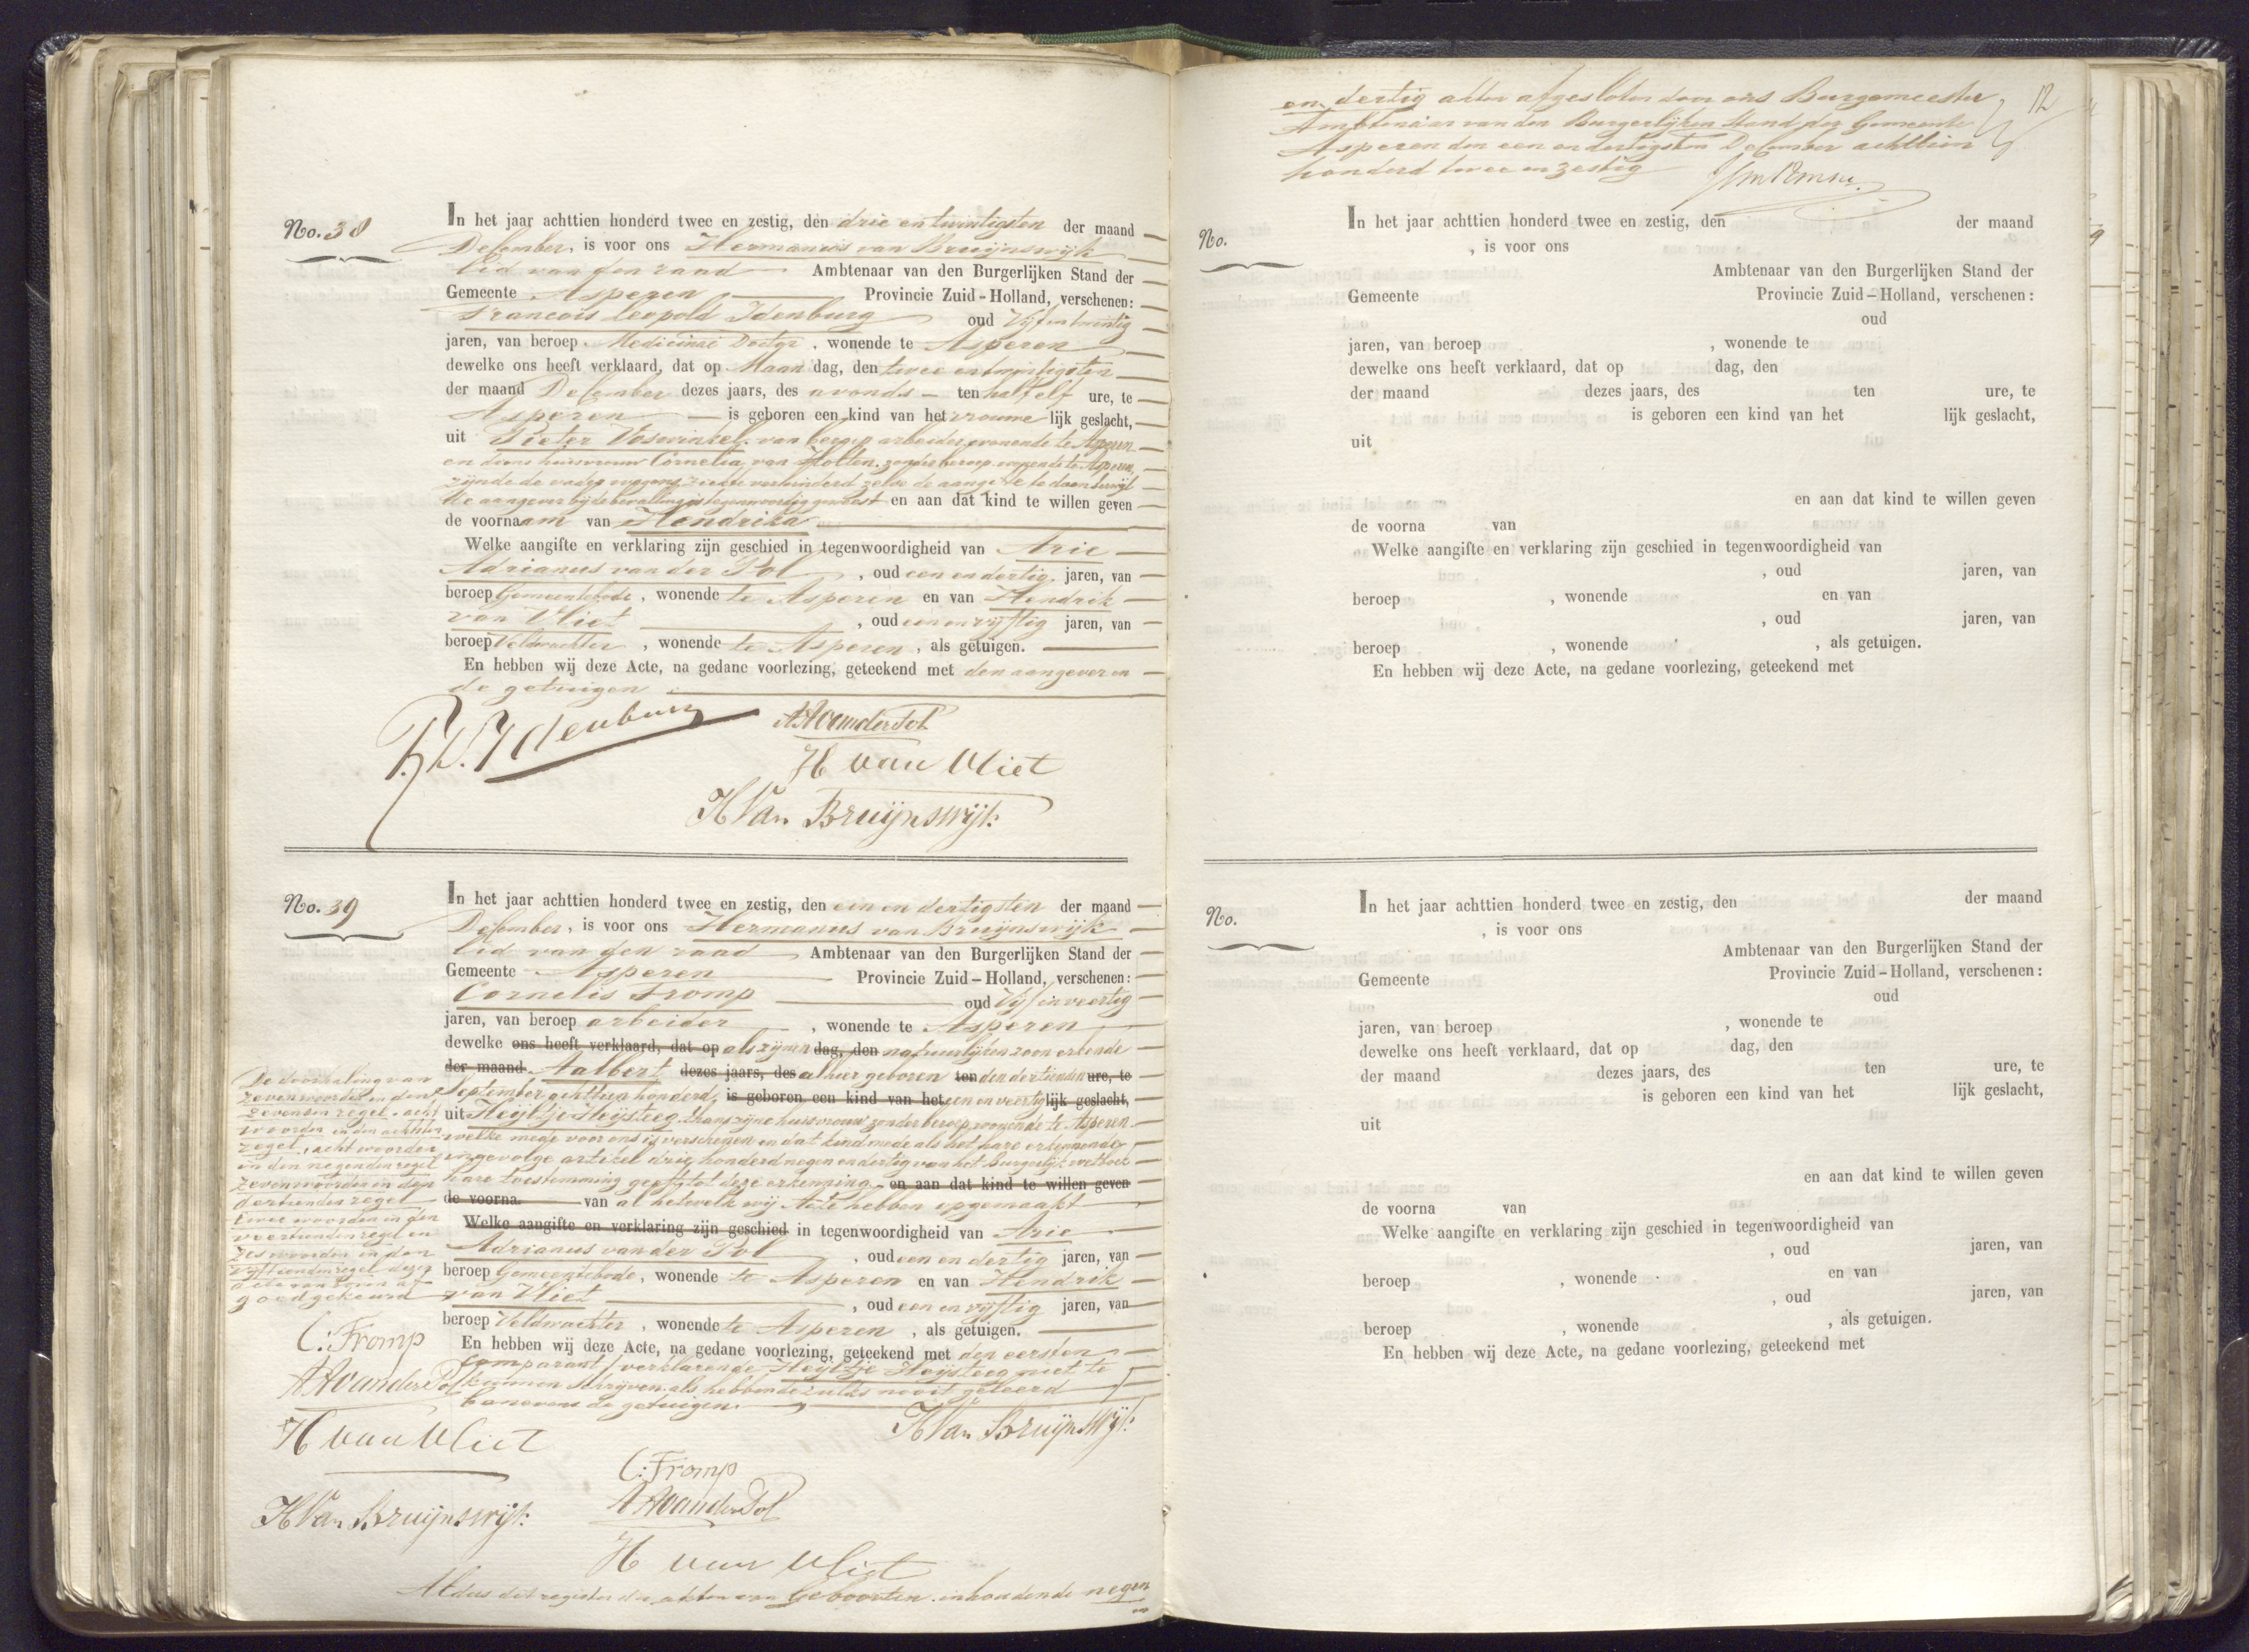 No. 38
In het jaar achttien honderd twee en zestig, den drie en twintigsten der maand
December, is voor ons Hermanus van Bruijnswijk
lid van den raad Ambtenaar van den Burgerlijken Stand der
Gemeente Asperen Provincie Zuid-Holland, verschenen:
Francois Leopold Idenburg oud Vijf en twintig
jaren, van beroep Medicinae Doctor, wonende te Asperen
dewelke ons heeft verklaard, dat op Maan dag, den twee en twintigsten
der maand December dezes jaars, des avonds ten half elf ure, te
Asperen is geboren een kind van het vrouwe lijk geslacht,
uit Pieter Voswinkel, van beroep arbeider, wonende te Asperen
en diens huisvrouw Cornelia van Holten, zonder beroep, wonende te Asperen,
zijnde de vader wegens ziekte verhinderd zelve de aangifte te doen terwijl
de aangever bij de bevalling is tegenwoordig geweest en aan dat kind te willen geven
de voornaam van Hendrika
Welke aangifte en verklaring zijn geschied in tegenwoordigheid van Arie
Adrianus van der Pol, oud een en dertig jaren, van
beroep Gemeentebode, wonende te Asperen en van Hendrik
van Vliet, oud een en vijftig jaren, van
beroep Veldwachter, wonende te Asperen, als getuigen.
En hebben wij deze Acte, na gedane voorlezing, geteekend met den aangever en
de getuigen
F.L. Idenburg
AAvanderPol
H van Vliet
HVan Bruijnswijk
No. 39
In het jaar achttien honderd twee en zestig, den een en dertigsten der maand
December, is voor ons Hermanus van Bruijnswijk
lid van den raad Ambtenaar van den Burgerlijken Stand der
Gemeente Asperen Provincie Zuid-Holland, verschenen:
Cornelis Fromp oud Vijf en veertig
jaren, van beroep arbeider, wonende te Asperen
dewelke ons heeft verklaard, dat op als zijnen dag, den natuurlijken zoon erkende
der maand Aalbert dezes jaars, des alhier geboren ten den dertienden ure, te
September achttien honderd, is geboren een kind van het een en veertig lijk geslacht,
uit Heyltje Heijsteeg, thans zijne huisvrouw zonder beroep, wonende te Asperen
welke mede voor ons is verschenen en dat kind mede als het hare erkennende,
ingevolge artikel drie honderd negen en dertig van het Burgerlijk wetboek
hare toestemming geeft tot deze erkenning, en aan dat kind te willen geven
de voorna van al hetwelk wij Acte hebben opgemaakt
Welke aangifte en verklaring zijn geschied in tegenwoordigheid van Arie
Adrianus van der Pol, oud een en dertig jaren, van
beroep Gemeentebode, wonende te Asperen en van Hendrik
van Vliet, oud een en vijftig jaren, van
beroep Veldwachter, wonende te Asperen, als getuigen.
En hebben wij deze Acte, na gedane voorlezing, geteekend met den eersten
Comparant, verklarende Heyltje Heijsteeg niet te
kunnen schrijven als hebbende zulks nooit geleerd
benevens de getuigen.
De doorhaling van
zeven woorden in den
zevenden regel, acht
woorden in den achtsten
regel, acht woorden
in den negenden regel
zeven woorden in den
dertienden regel
twee woorden in den
veertienden regel en
zes woorden in den
vijftienden regel dezer
acte van boven af
goedgekeurd
C: Fromp
AAvanderPol
H van Vliet
HVan Bruijnswijk
HVan Bruijnswijk
C: Fromp
AAvanderPol
H van Vliet
Aldus dit register der akten van Geboorten inhoudende negen
en dertig akten afgesloten door ons Burgemeester
Ambtenaar van den Burgerlijken Stand der Gemeente
Asperen den een en dertigsten December achttien
honderd twee en zestig
12
No.
In het jaar achttien honderd twee en zestig, den der maand
, is voor ons
Ambtenaar van den Burgerlijken Stand der
Gemeente Provincie Zuid-Holland, verschenen:
oud
jaren, van beroep , wonende te
dewelke ons heeft verklaard, dat op dag, den
der maand dezes jaars, des ten ure, te
is geboren een kind van het lijk geslacht,
uit
en aan dat kind te willen geven
de voorna van
Welke aangifte en verklaring zijn geschied in tegenwoordigheid van
, oud jaren, van
beroep , wonende en van
, oud jaren, van
beroep , wonende , als getuigen.
En hebben wij deze Acte, na gedane voorlezing, geteekend met
No.
In het jaar achttien honderd twee en zestig, den der maand
, is voor ons
Ambtenaar van den Burgerlijken Stand der
Gemeente Provincie Zuid-Holland, verschenen:
oud
jaren, van beroep , wonende te
dewelke ons heeft verklaard, dat op dag, den
der maand dezes jaars, des ten ure, te
is geboren een kind van het lijk geslacht,
uit
en aan dat kind te willen geven
de voorna van
Welke aangifte en verklaring zijn geschied in tegenwoordigheid van
, oud jaren, van
beroep , wonende en van
, oud jaren, van
beroep , wonende , als getuigen.
En hebben wij deze Acte, na gedane voorlezing, geteekend met